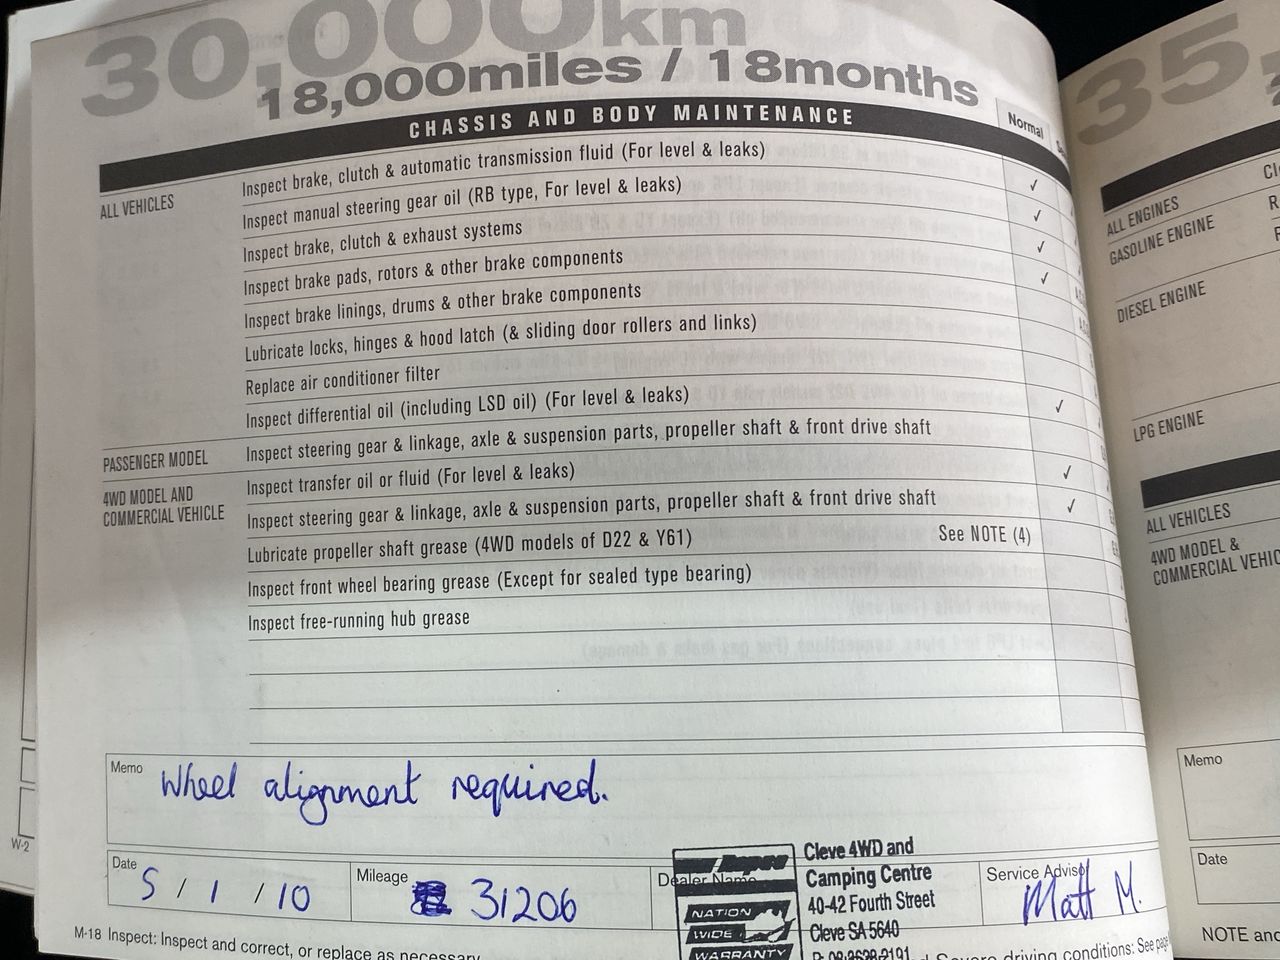 30,000km
18,000miles / 18months
CHASSIS AND BODY MAINTENANCE
Normal
ALL VEHICLES
Inspect brake, clutch & automatic transmission fluid (For level & leaks) ✓
Inspect manual steering gear oil (RB type, For level & leaks) ✓
Inspect brake, clutch & exhaust systems ✓
Inspect brake pads, rotors & other brake components ✓
Inspect brake linings, drums & other brake components
Lubricate locks, hinges & hood latch (& sliding door rollers and links)
Replace air conditioner filter
Inspect differential oil (including LSD oil) (For level & leaks) ✓
PASSENGER MODEL
Inspect steering gear & linkage, axle & suspension parts, propeller shaft & front drive shaft
4WD MODEL AND
COMMERCIAL VEHICLE
Inspect transfer oil or fluid (For level & leaks) ✓
Inspect steering gear & linkage, axle & suspension parts, propeller shaft & front drive shaft ✓
Lubricate propeller shaft grease (4WD models of D22 & Y61) See NOTE (4)
Inspect front wheel bearing grease (Except for sealed type bearing)
Inspect free-running hub grease
Memo
Wheel alignment required.
Date
5 / 1 / 10
Mileage
31206
Dealer Name
Repco
NATION
WIDE
WARRANTY
Cleve 4WD and
Camping Centre
40-42 Fourth Street
Cleve SA 5640
P: 08 8628 2191
Service Advisor
Matt M.
M-18 Inspect: Inspect and correct, or replace as necessary
Severe driving conditions: See page
W-2
35,
ALL ENGINES
GASOLINE ENGINE
DIESEL ENGINE
LPG ENGINE
ALL VEHICLES
4WD MODEL &
COMMERCIAL VEHIC
Memo
Date
NOTE and